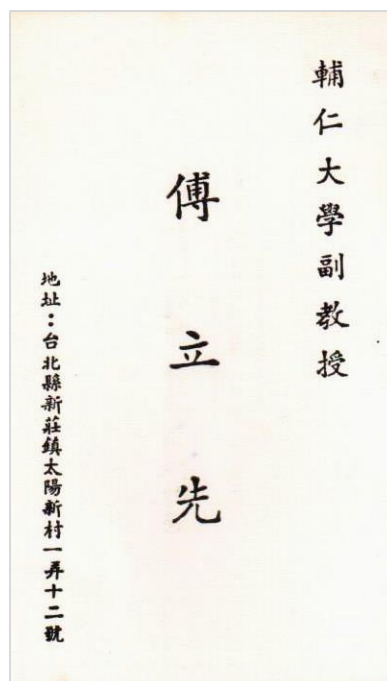 輔仁大學副教授
傅立先
地址：台北縣新莊鎮太陽新村一弄十二號